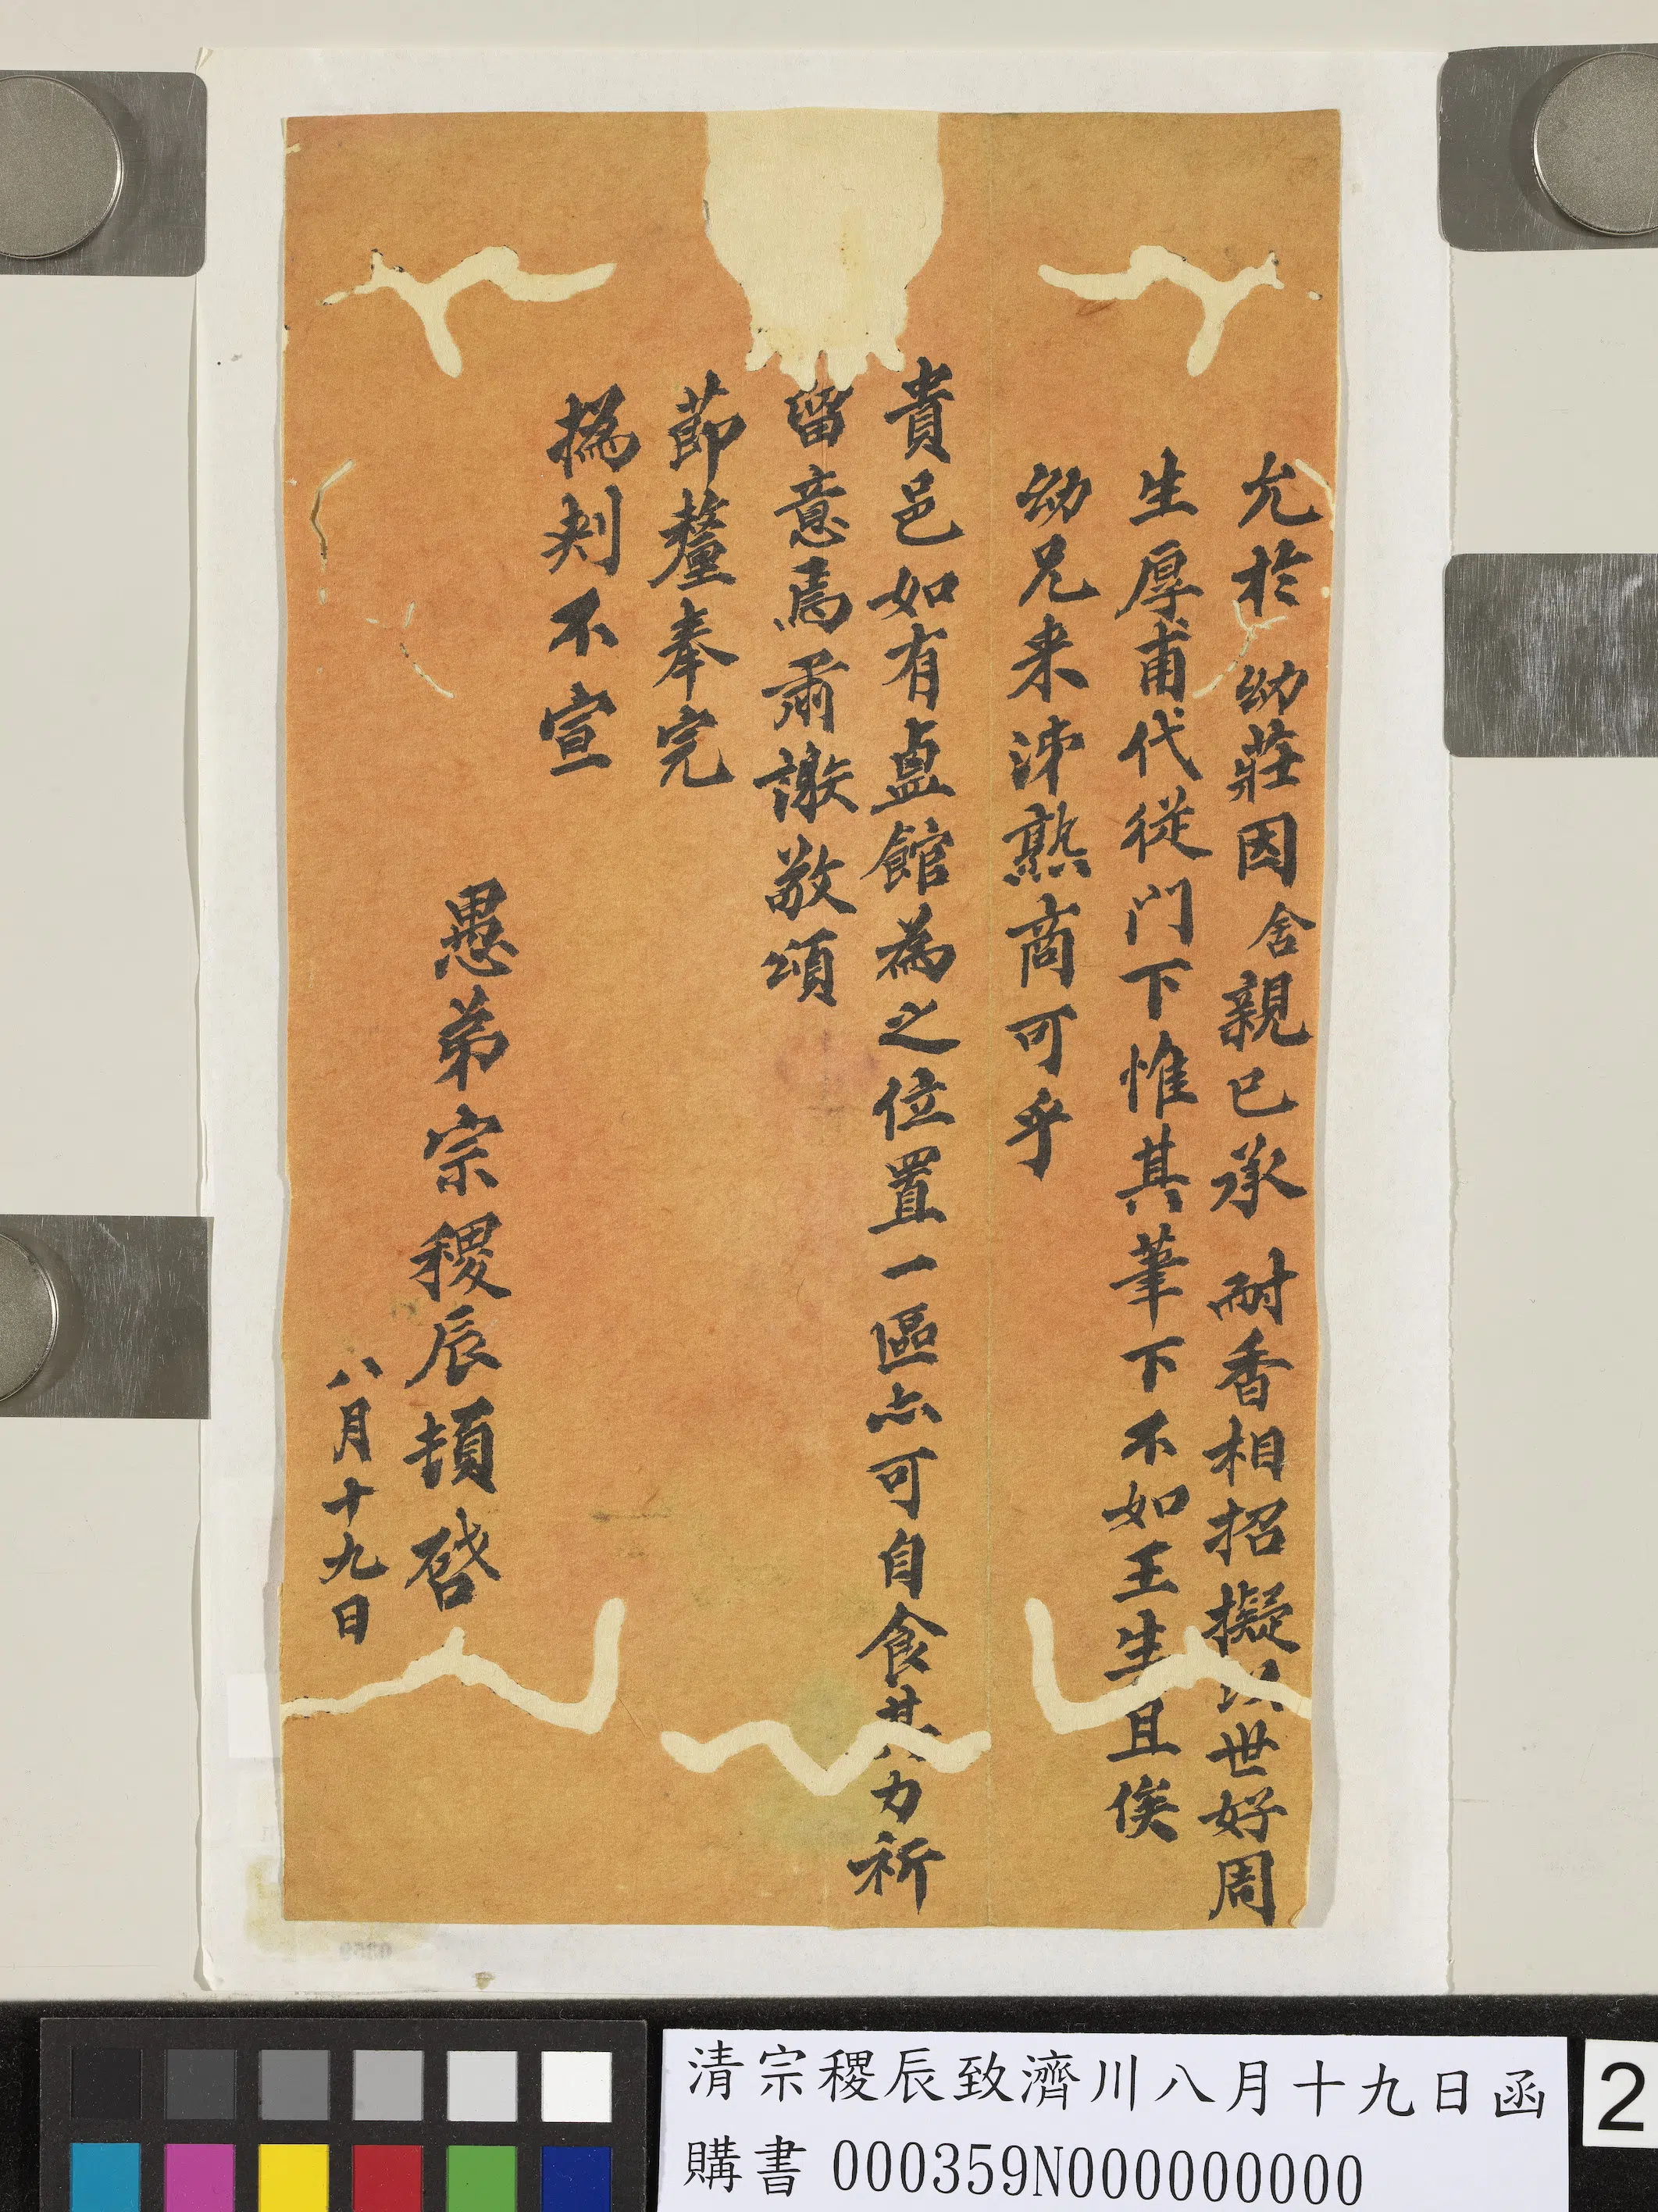 允於 幼莊因舍親已承 耐香相招擬以世好周
生厚甫代從門下惟其筆下不如王生且俟
幼兄来沭熟商可乎
貴邑如有盐館為之位置一區亦可自食其力祈
留意焉肅謝敬頌
節釐奉完
撝刺不宣
愚弟宗稷辰頓啓
八月十九日
清宗稷辰致濟川八月十九日函
購書 000359N000000000
2